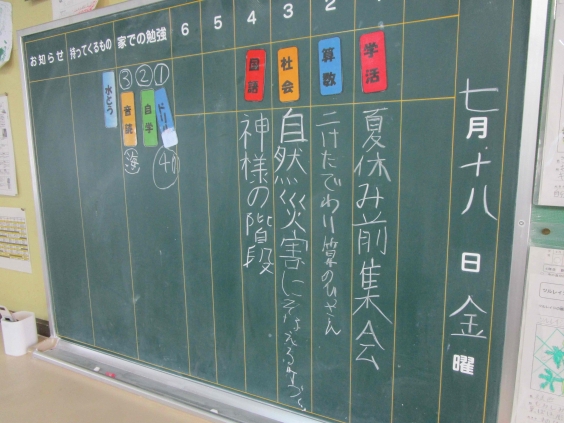 七月十八日金曜
学活
夏休み前集会
2
算数
二けたでわり算のひっさん
3
社会
自然災害にそなえるまちづ
4
国語
神様の階段
5
6
家での勉強
①
ドリル
②
自学
③
音読
持ってくるもの
水とう
お知らせ